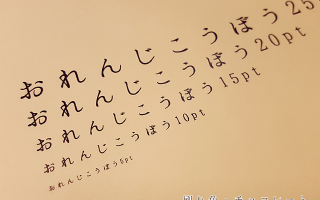 おれんじこうぼう25
おれんじこうぼう20pt
おれんじこうぼう15pt
おれんじこうぼう10pt
おれんじこうぼう8pt